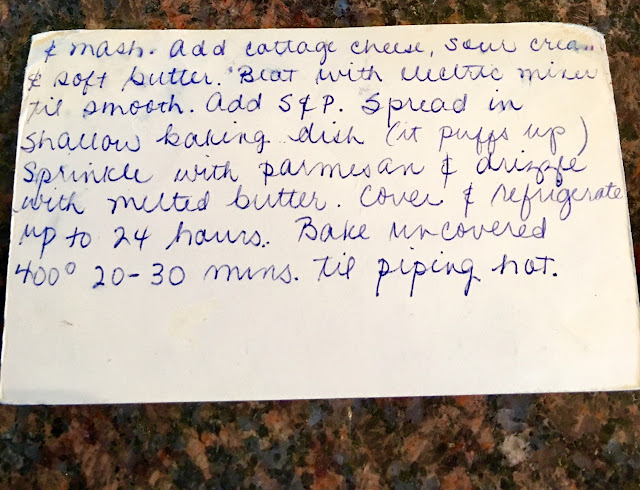 & mash. Add cottage cheese, sour crea..
& soft butter. Beat with electric mixer
til smooth. Add S&P. Spread in
shallow baking dish (it puffs up)
Sprinkle with parmesan & drizzle
with melted butter. Cover & refrigerate
up to 24 hours. Bake uncovered
400° 20-30 mins. til piping hot.